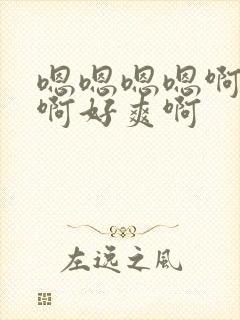 嗯嗯嗯嗯啊
啊好爽啊
左远之风